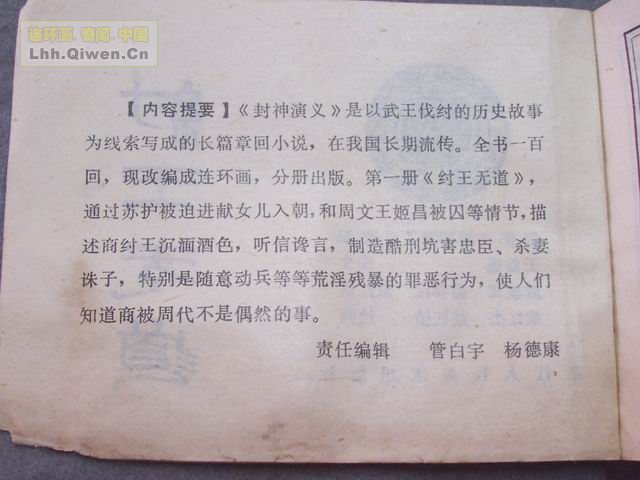 连环画.奇闻.中国
Lhh.Qiwen.Cn
【内容提要】《封神演义》是以武王伐纣的历史故事
为线索写成的长篇章回小说，在我国长期流传。全书一百
回，现改编成连环画，分册出版。第一册《纣王无道》，
通过苏护被迫进献女儿入朝，和周文王姬昌被囚等情节，描
述商纣王沉湎酒色，听信谗言，制造酷刑坑害忠臣、杀妻
诛子，特别是随意动兵等等荒淫残暴的罪恶行为，使人们
知道商被周代不是偶然的事。
责任编辑 管白宇 杨德康